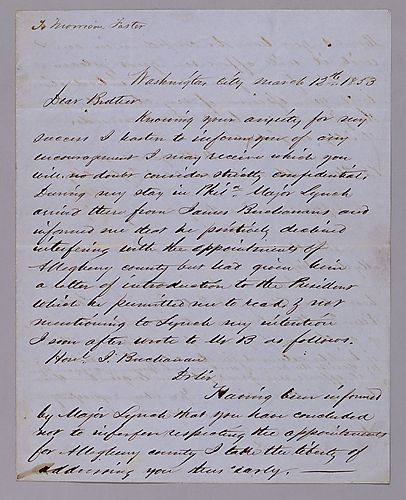 To Morrison Foster
Washington City March 12th 1853
Dear Brother
Knowing your anxiety for my
success I hasten to inform you of any
encouragement I may receive which you
will no doubt consider strictly confidential.
During my stay in Phila Major Lynch
arrived there from James Buchanans, and
informed me that he positively declined
interfering with the appointments of
Allegheny county but had given him
a letter of introduction to the President
which he permitted me to read, & not
mentioning to Lynch my intention
I soon after wrote to Mr B as follows.
Honl J. Buchanan
Dr Sir
Having been informed
by Major Lynch that you have concluded
not to interfere respecting the appointments
for Allegheny county I take the liberty of
addressing you thus early.